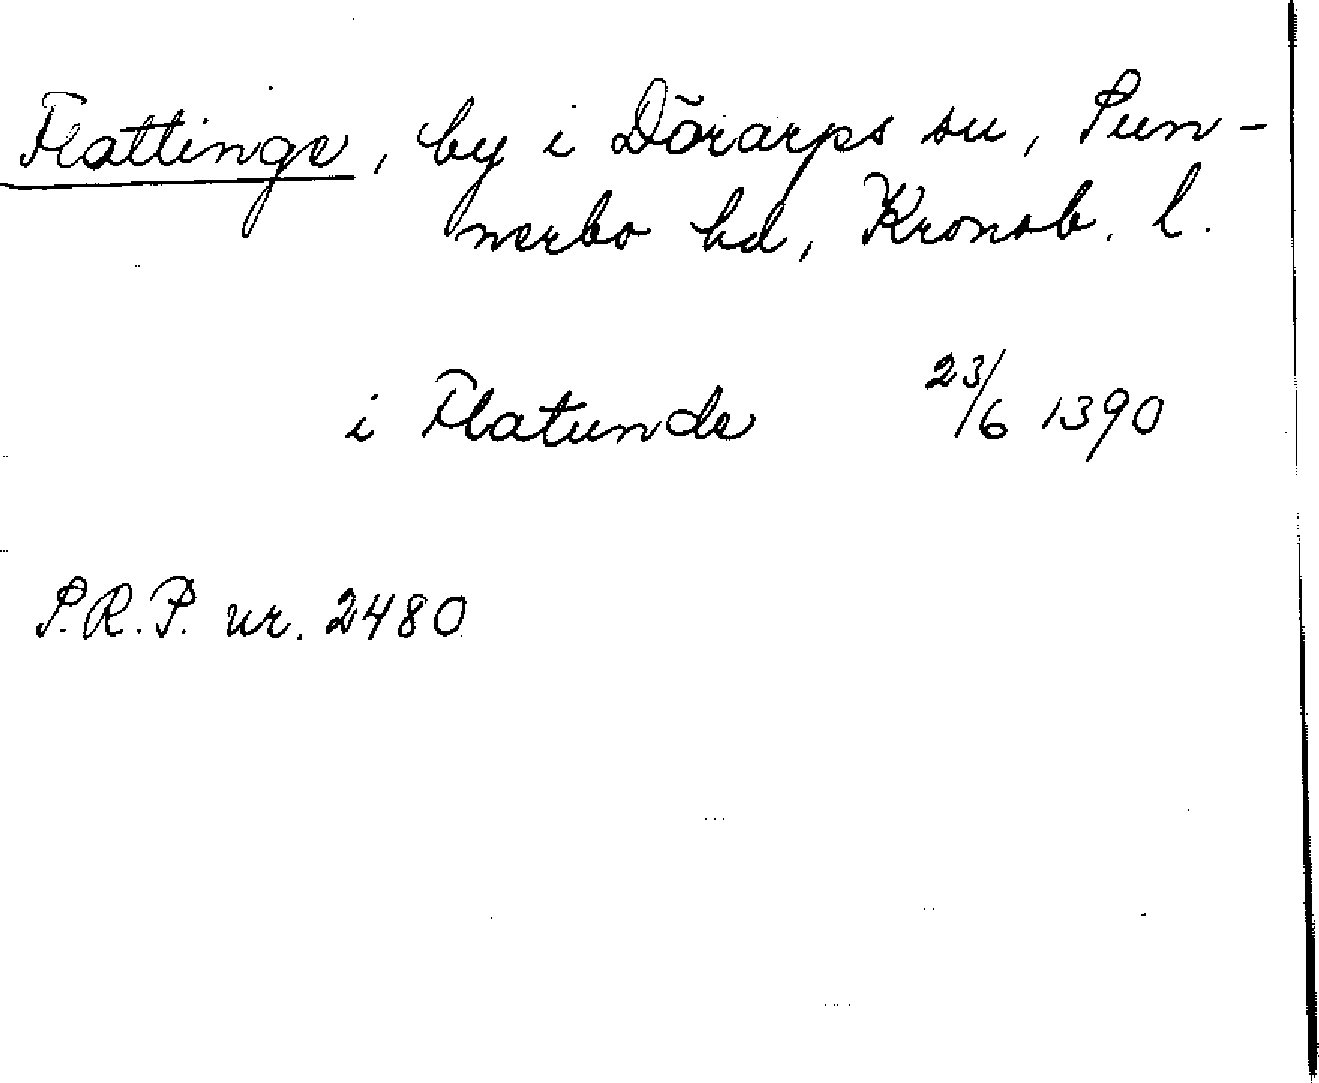 Flattinge, by i Dörarps sn, Sun-
nerbo hd, Kronob. l.
i Flatunde 23/6 1390
S.R.P. nr. 2480